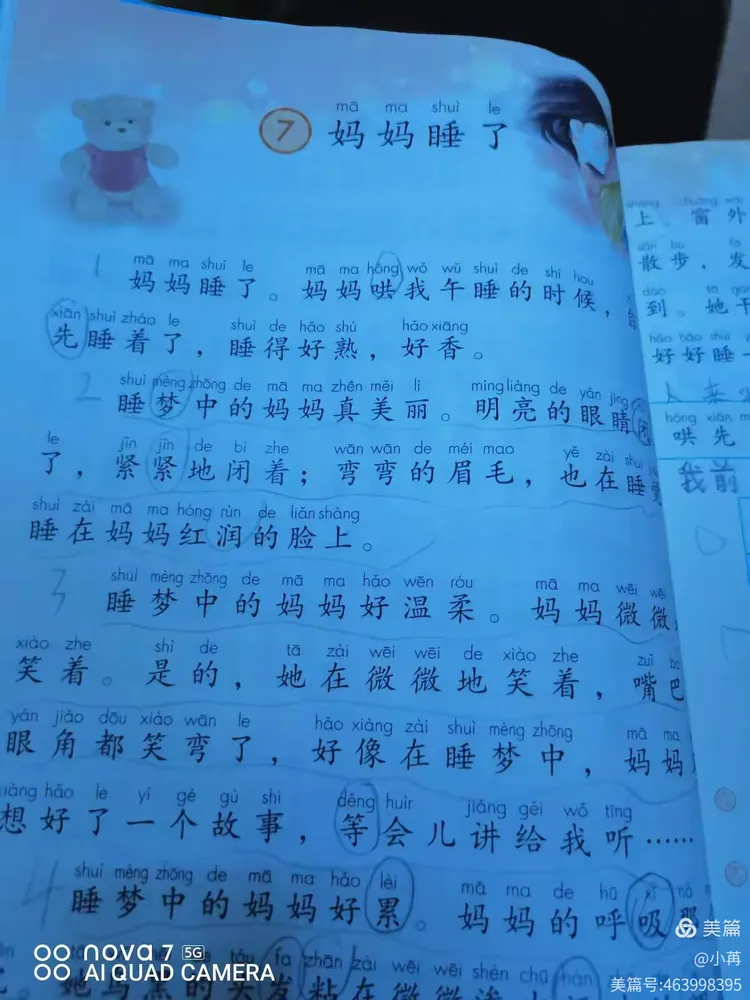 mā ma shuì le
7 妈妈睡了
mā ma shuì le mā ma hǒng wǒ wǔ shuì de shí hou
1 妈妈睡了。妈妈哄我午睡的时候，
xiān shuì zháo le shuì de hǎo shú hǎo xiāng
先睡着了，睡得好熟，好香。
shuì mèng zhōng de mā ma zhēn měi lì míng liàng de yǎn jing
2 睡梦中的妈妈真美丽。明亮的眼睛闭
le jǐn jǐn de bì zhe wān wān de méi mao yě zài shuì
了，紧紧地闭着；弯弯的眉毛，也在睡觉
shuì zài mā ma hóng rùn de liǎn shàng
睡在妈妈红润的脸上。
shuì mèng zhōng de mā ma hǎo wēn róu mā ma wēi wēi
3 睡梦中的妈妈好温柔。妈妈微微
xiào zhe shì de tā zài wēi wēi de xiào zhe zuǐ bā
笑着。是的，她在微微地笑着，嘴巴
yǎn jiǎo dōu xiào wān le hǎo xiàng zài shuì mèng zhōng mā ma
眼角都笑弯了，好像在睡梦中，妈妈
xiǎng hǎo le yí gè gù shi děng huìr jiǎng gěi wǒ tīng
想好了一个故事，等会儿讲给我听……
shuì mèng zhōng de mā ma hǎo lèi mā ma de hū xī nà
4 睡梦中的妈妈好累。妈妈的呼吸那
tóu fa zhān zài wēi wēi shèn chū hàn
的头发粘在微微渗
上。窗外
sàn bù fā
散步，发
dào tā gàn
到。她干
hǎo hǎo shuì
好好睡一
hǒng xiān
哄先
我前
nova 7 5G
AI QUAD CAMERA
美篇
@小苒
美篇号:463998395